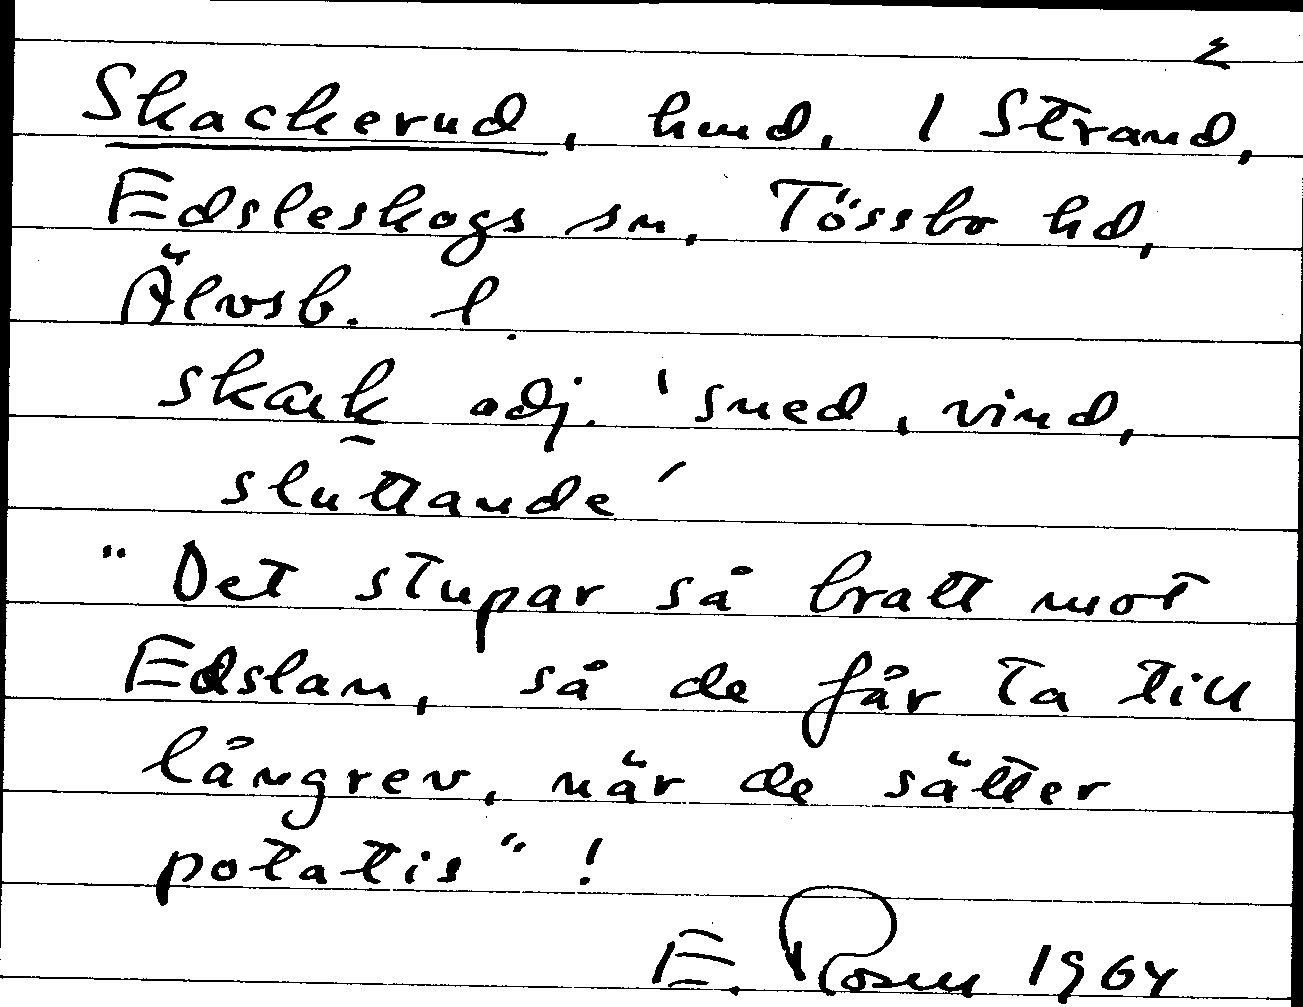 2
Skackerud, hmd, 1 Strand,
Edsleskogs sn, Tössbo hd,
Älvsb. l.
skak adj. 'sned, vind,
sluttande'
"Det stupar så bratt mot
Edslan, så de får ta till
långrev, när de sätter
potatis"!
E. Rosen 1964